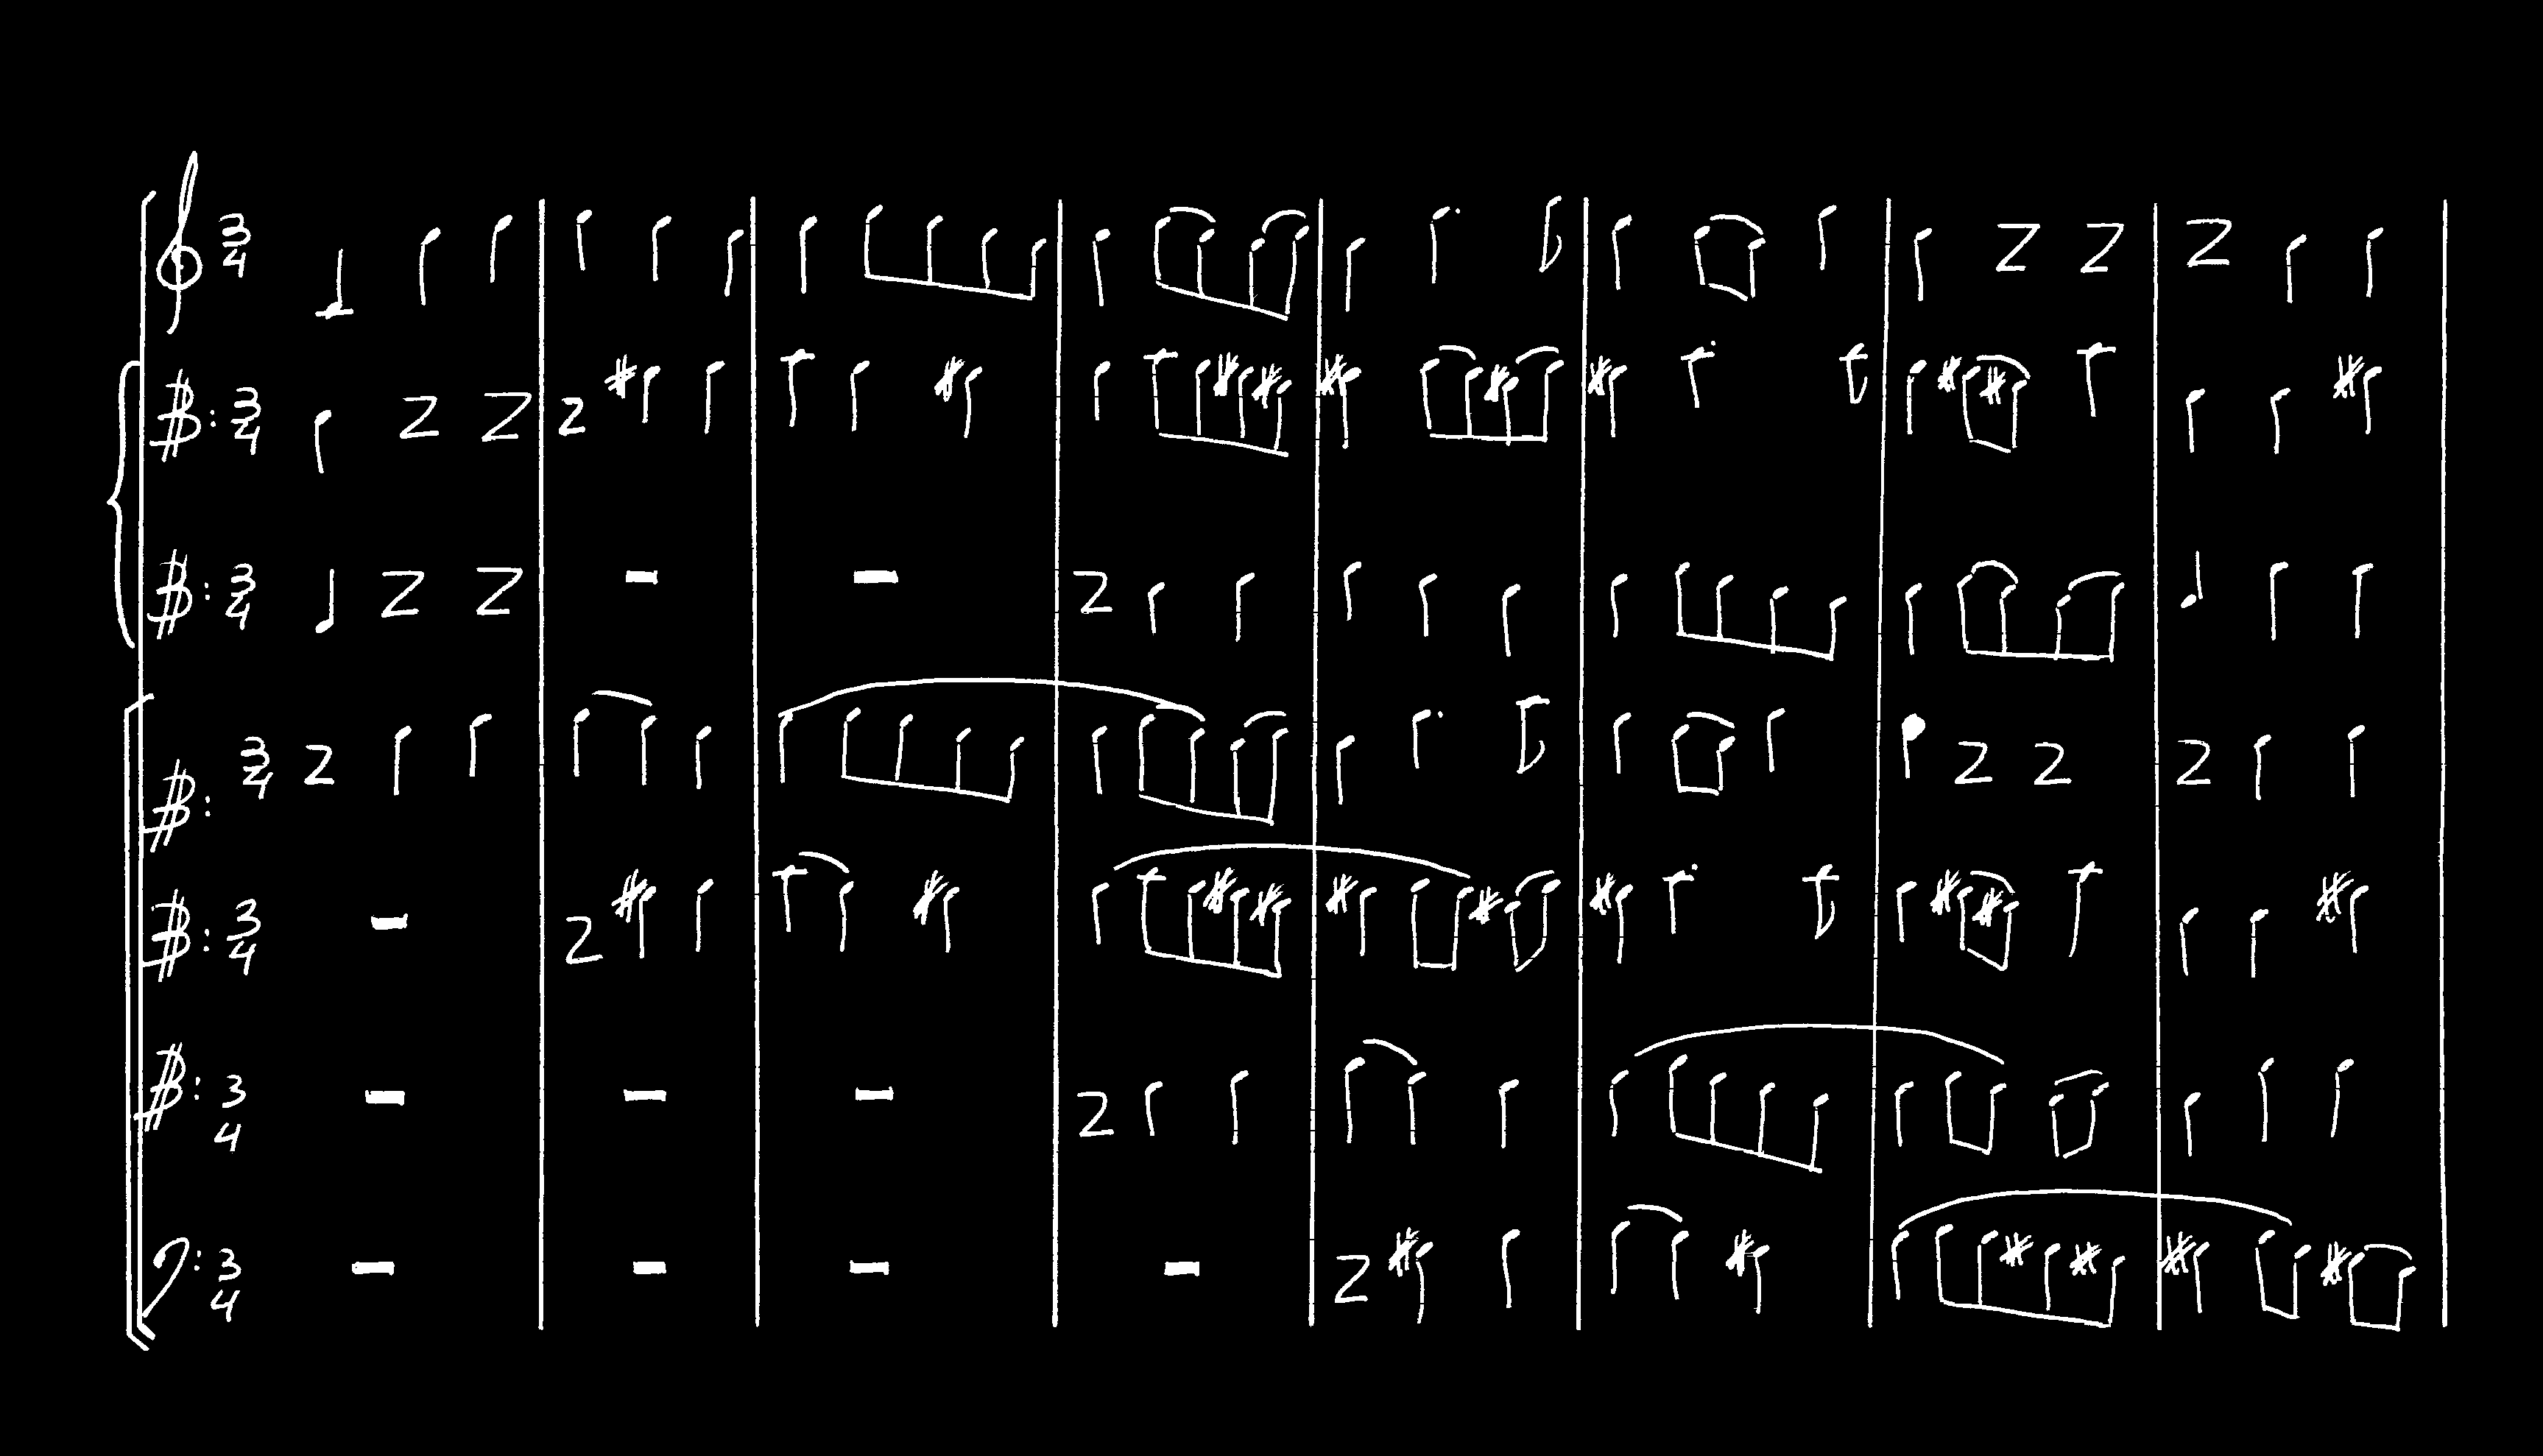 3
4
3
4
3
4
3
4
3
4
3
4
3
4